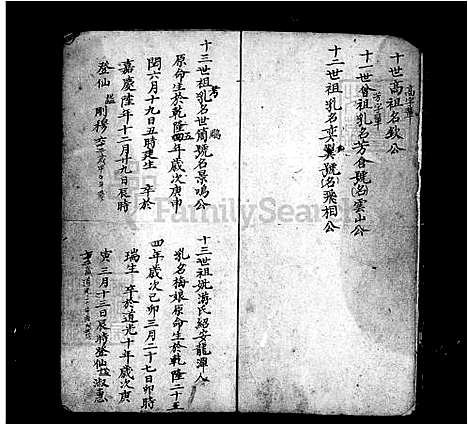 十世高祖名欽公
高字輩
十一世曾祖乳名芳合號(名)雲山公
十二世祖乳名奕巽號(名)飛相公
十三世祖考乳名世簡號名景鳴公
鵾
原命生於乾隆五年歲次庚申
閏六月十九日丑時建生 卒於
嘉慶陸年十二月廿九日辰時
登仙 謚剛穆
十三世祖妣游氏紹安龍潭人
乳名梅娘原命生於乾隆二十五
四年歲次己卯三月二十七日卯時
瑞生 卒於道光十年歲次庚
寅三月十三日辰時登仙謚淑惠
FamilySearch